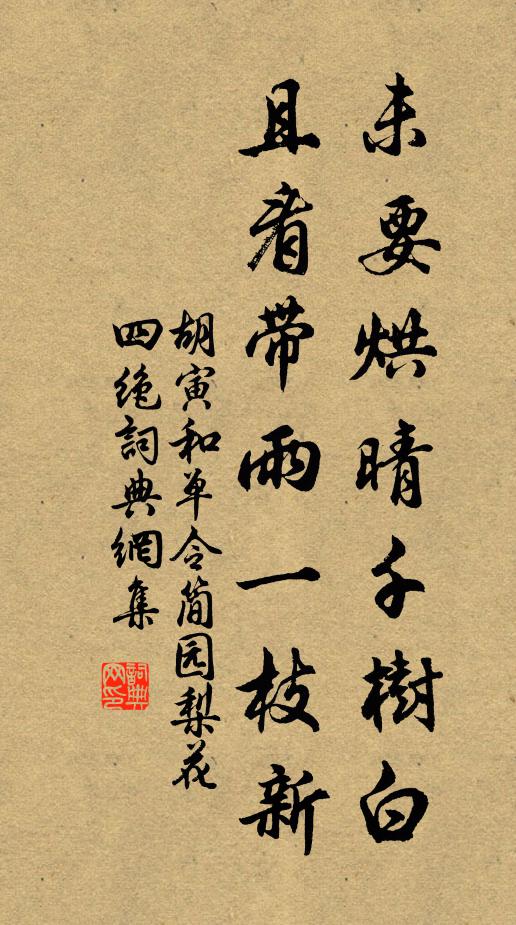 未要烘晴千樹白
且看帶雨一枝新
胡寅和单令简园梨花
四绝詞典網集
詞典
网印